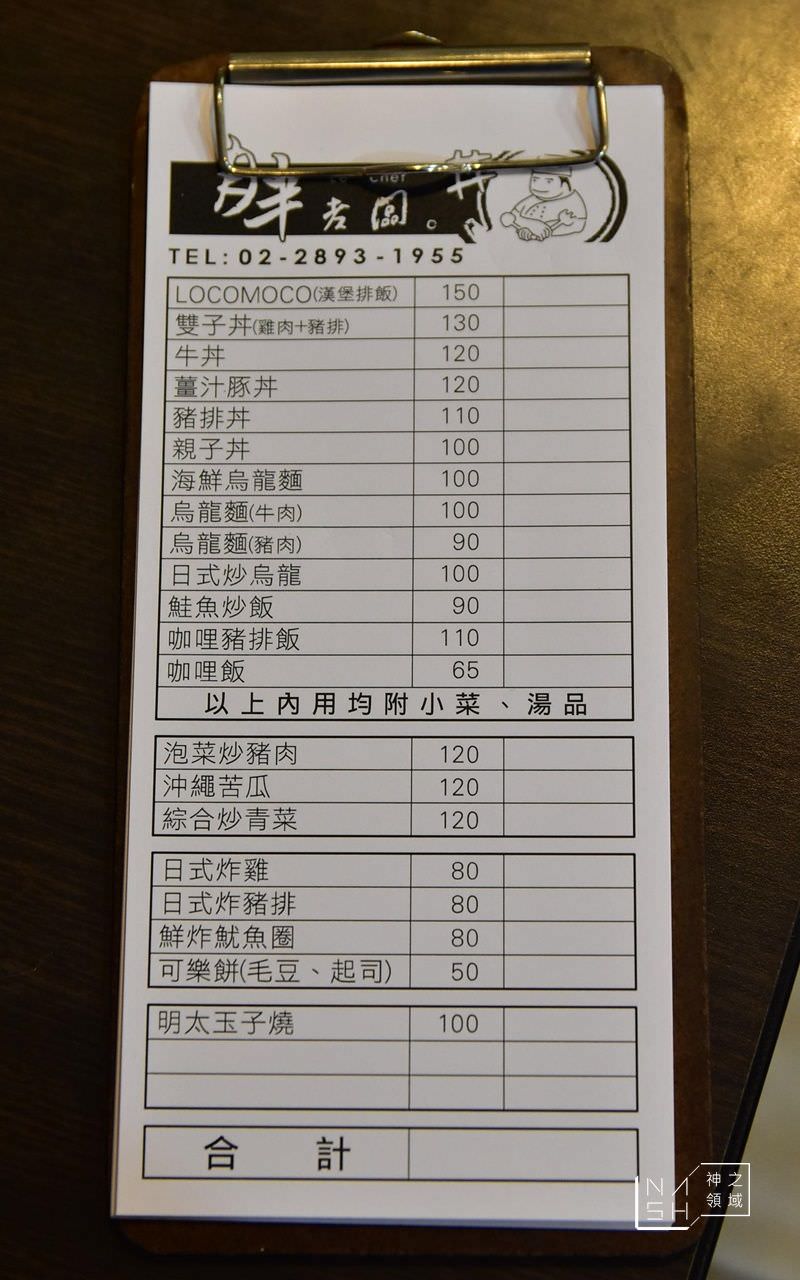 胖老闆。丼
TEL: 02-2893-1955
LOCOMOCO(漢堡排飯) 150
雙子丼(雞肉+豬排) 130
牛丼 120
薑汁豚丼 120
豬排丼 110
親子丼 100
海鮮烏龍麵 100
烏龍麵(牛肉) 100
烏龍麵(豬肉) 90
日式炒烏龍 100
鮭魚炒飯 90
咖哩豬排飯 110
咖哩飯 65
以上內用均附小菜、湯品
泡菜炒豬肉 120
沖繩苦瓜 120
綜合炒青菜 120
日式炸雞 80
日式炸豬排 80
鮮炸魷魚圈 80
可樂餅(毛豆、起司) 50
明太玉子燒 100
合計
NASH 神之領域